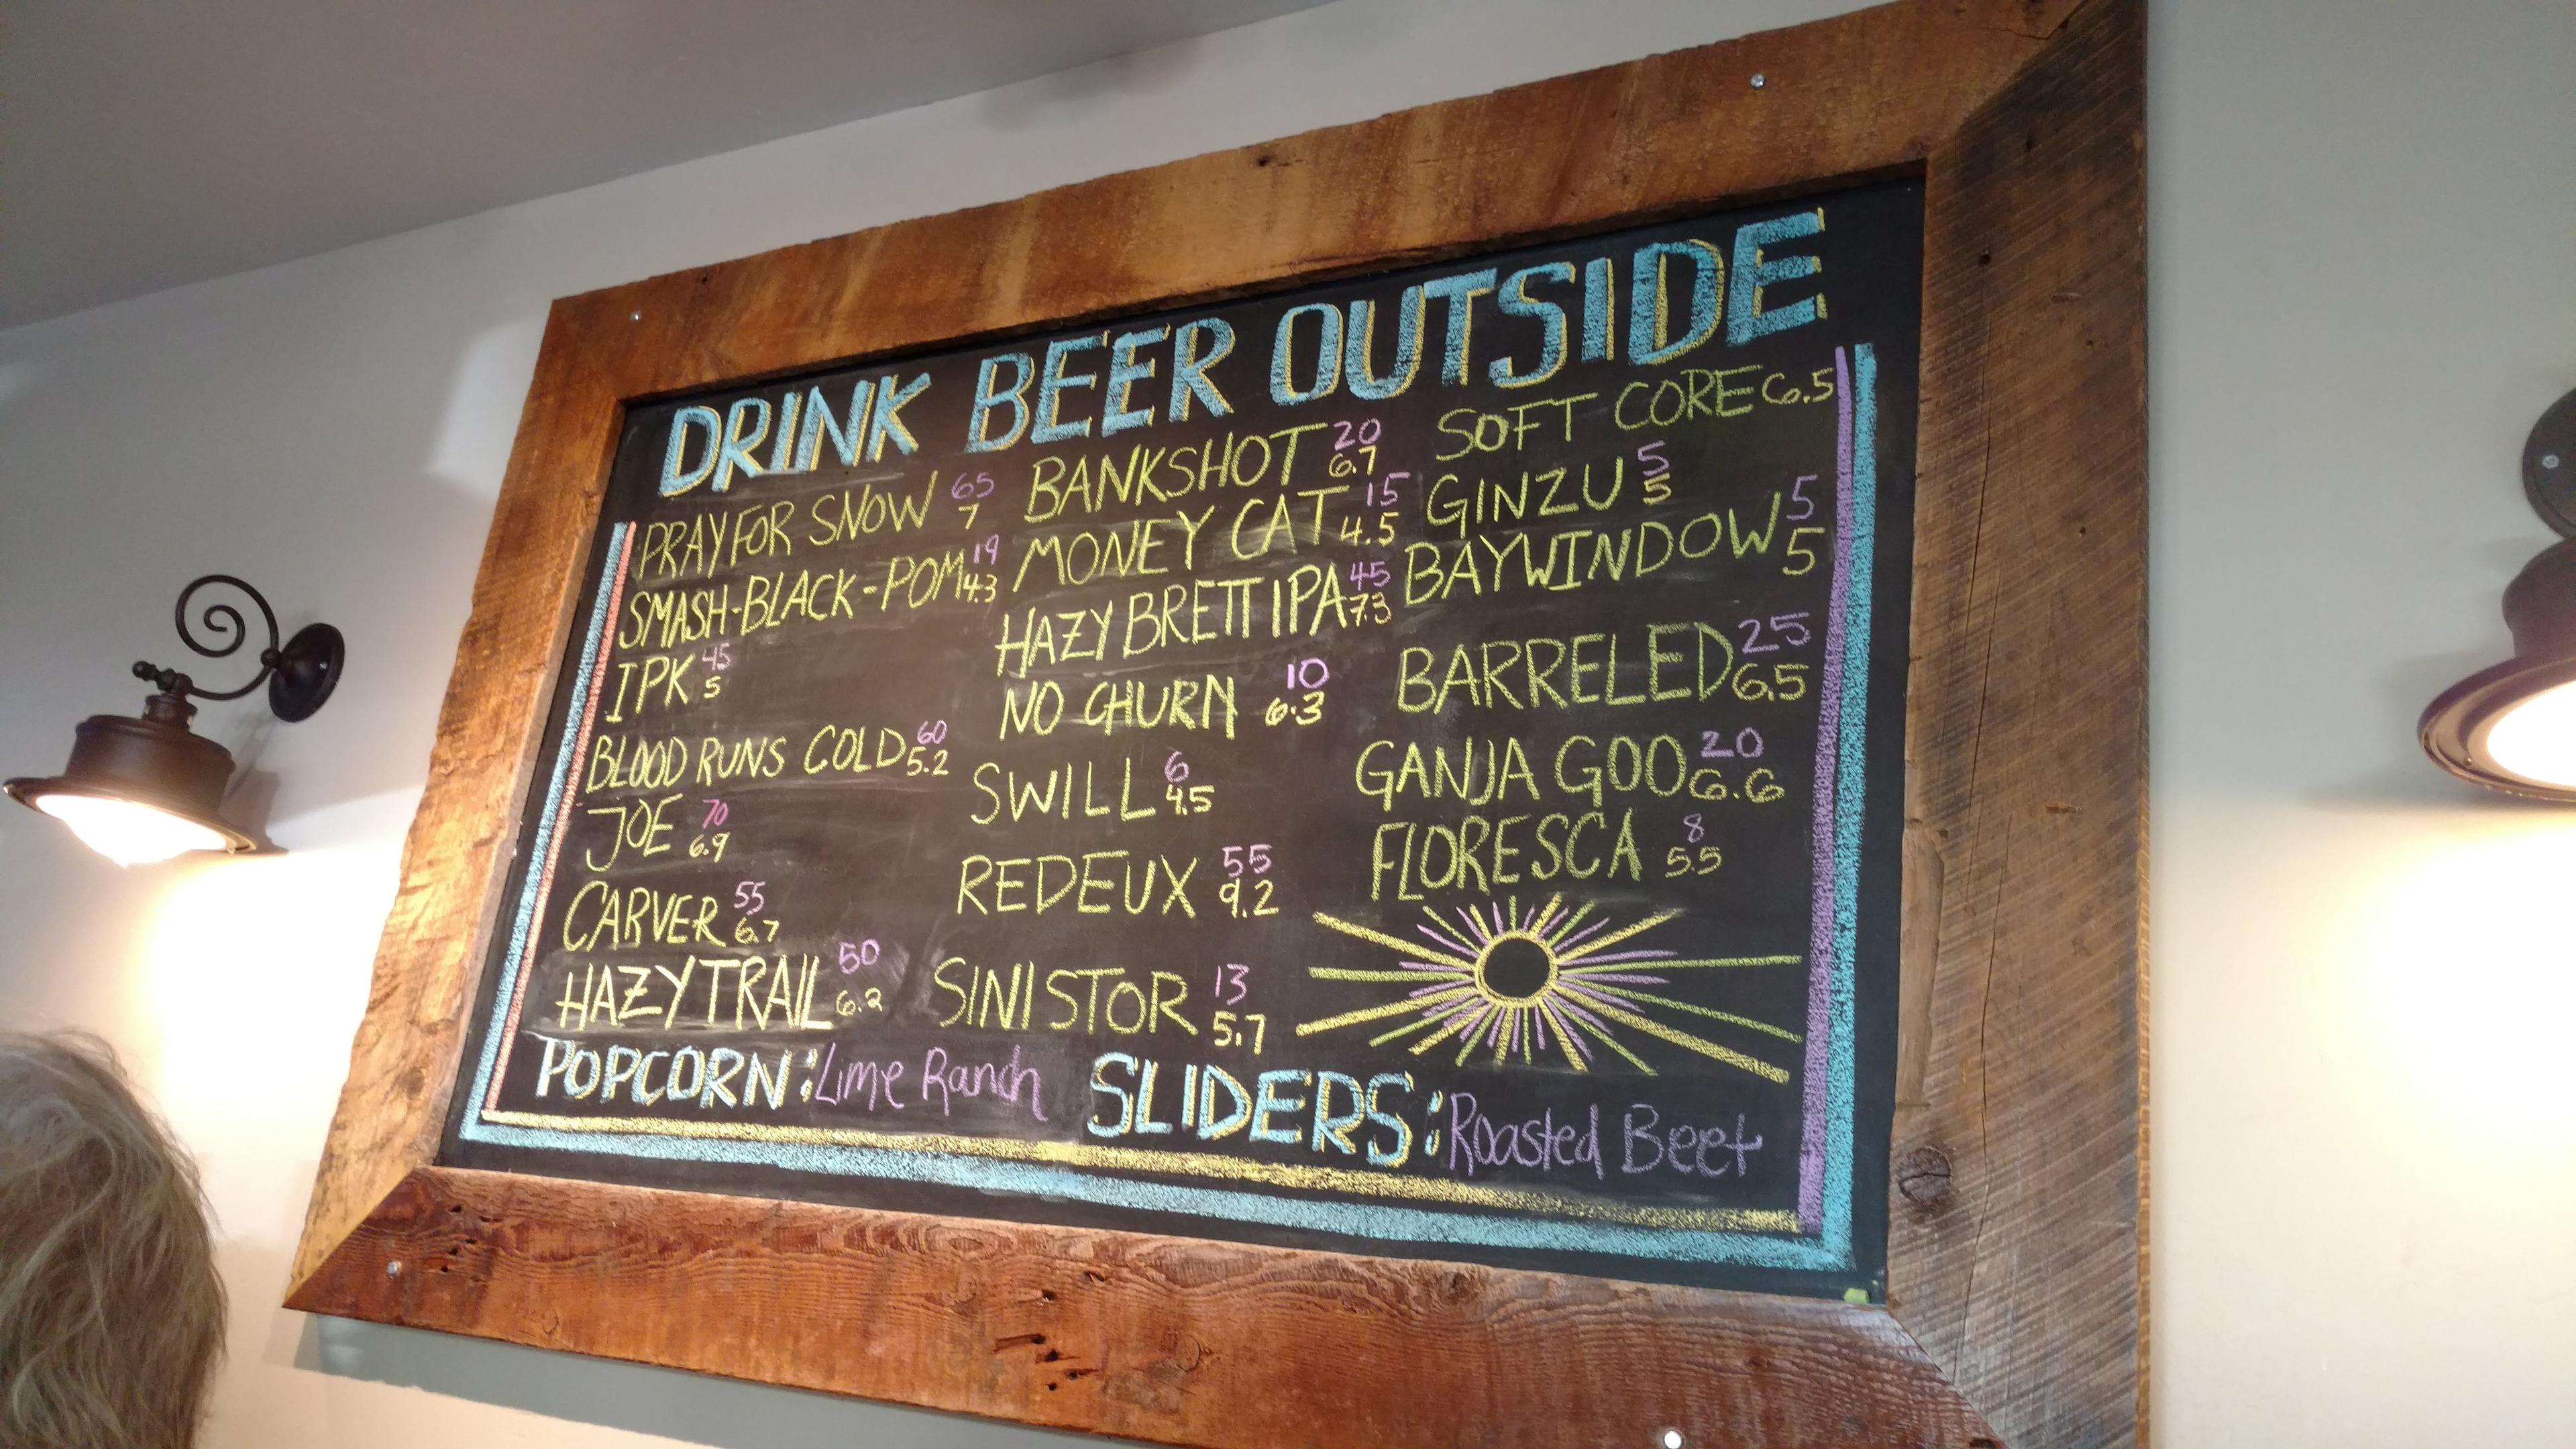 DRINK BEER OUTSIDE
PRAY FOR SNOW 65
7
SMASH-BLACK-POM 19
4.3
IPK 45
5
BLOOD RUNS COLD 60
5.2
JOE 70
6.9
CARVER 55
6.7
HAZY TRAIL 50
6.2
BANKSHOT 20
6.7
MONEY CAT 15
4.5
HAZY BRETT IPA 45
7.3
NO CHURN 10
6.3
SWILL 6
4.5
REDEUX 55
9.2
SINISTOR 13
5.7
SOFT CORE 6.5
GINZU 5
5
BAYWINDOW 5
5
BARRELED 25
6.5
GANJA GOO 20
6.6
FLORESCA 8
5.5
POPCORN: Lime Ranch
SLIDERS: Roasted Beet